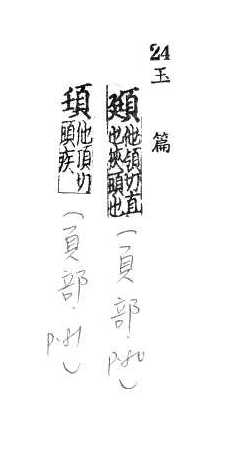 24 玉篇
頲 他領切直也狹頭也 (頁部·p.80)
他頂切頭疾 (頁部·p.81)